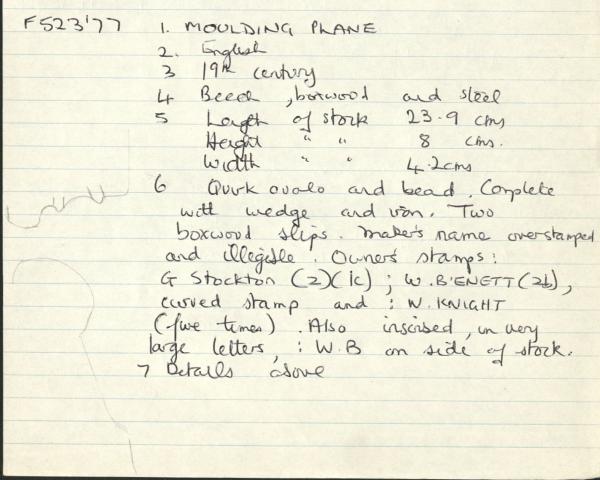 F523'77 1. MOULDING PLANE
2. English
3 19th century
4 Beech, boxwood and steel
5 Length of stock 23.9 cms
Height " " 8 cms.
Width " " 4.2cms
6 Quirk ovolo and bead. Complete
with wedge and iron. Two
boxwood slips. Maker's name overstamped
and illegible. Owner's stamps:
G Stockton (2)(1c); W.B'ENETT(2b),
curved stamp and : W. KNIGHT
(five times). Also inscised, in very
large letters, : W.B on side of stock.
7 Details above